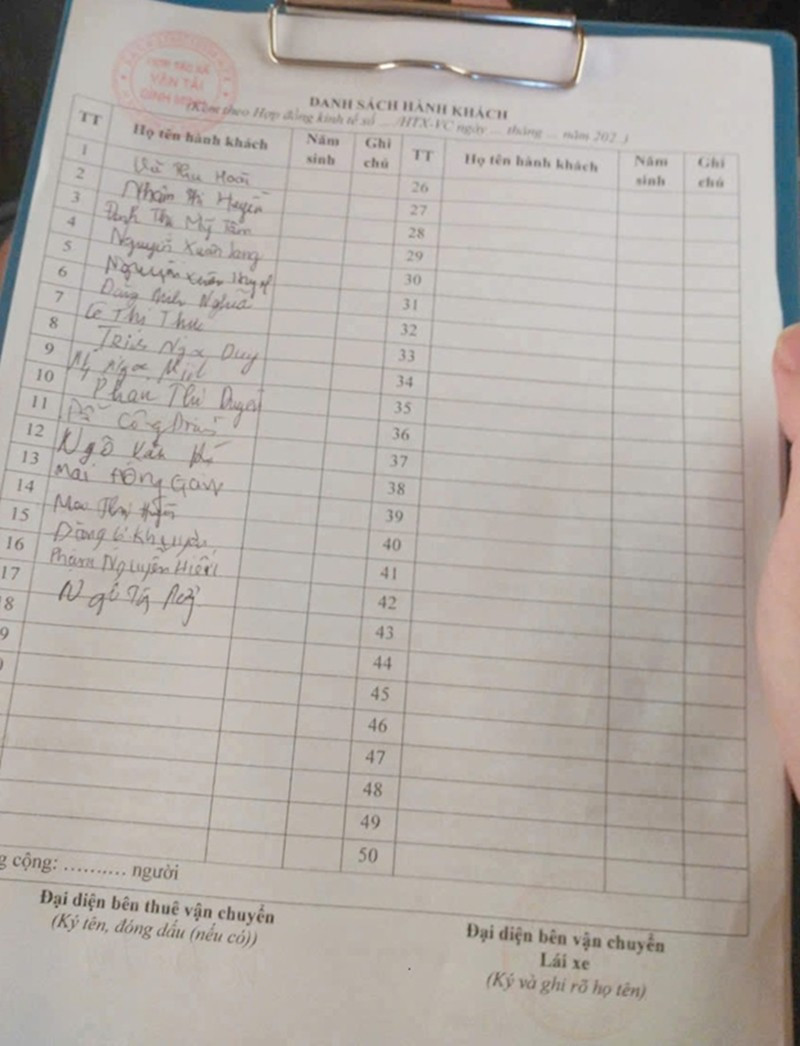 HỢP TÁC XÃ
VẬN TẢI
DANH SÁCH HÀNH KHÁCH
(Kèm theo Hợp đồng kinh tế số ... /HTX-VC ngày ... tháng ... năm 202..)
TT Họ tên hành khách Năm sinh Ghi chú TT Họ tên hành khách Năm sinh Ghi chú
1 Vũ Thu Hoài 26
2 Phạm Thị Huyền 27
3 Đinh Thị Mỹ Tâm 28
4 Nguyễn Xuân 29
5 Nguyễn Xuân 30
6 Đặng Nghĩa 31
7 Lê Thị Thu 32
8 Ngọc Duy 33
9 Ngọc 34
10 Phan Thị Duyên 35
11 Công 36
12 Ngô Văn 37
13 Mai 38
14 Thị Huyền 39
15 Đặng 40
16 Phạm Nguyễn Hiếu 41
17 Ngô 42
18 43
44
45
46
47
48
49
50
g cộng: .......... người
Đại diện bên thuê vận chuyển
(Ký tên, đóng dấu (nếu có))
Đại diện bên vận chuyển
Lái xe
(Ký và ghi rõ họ tên)